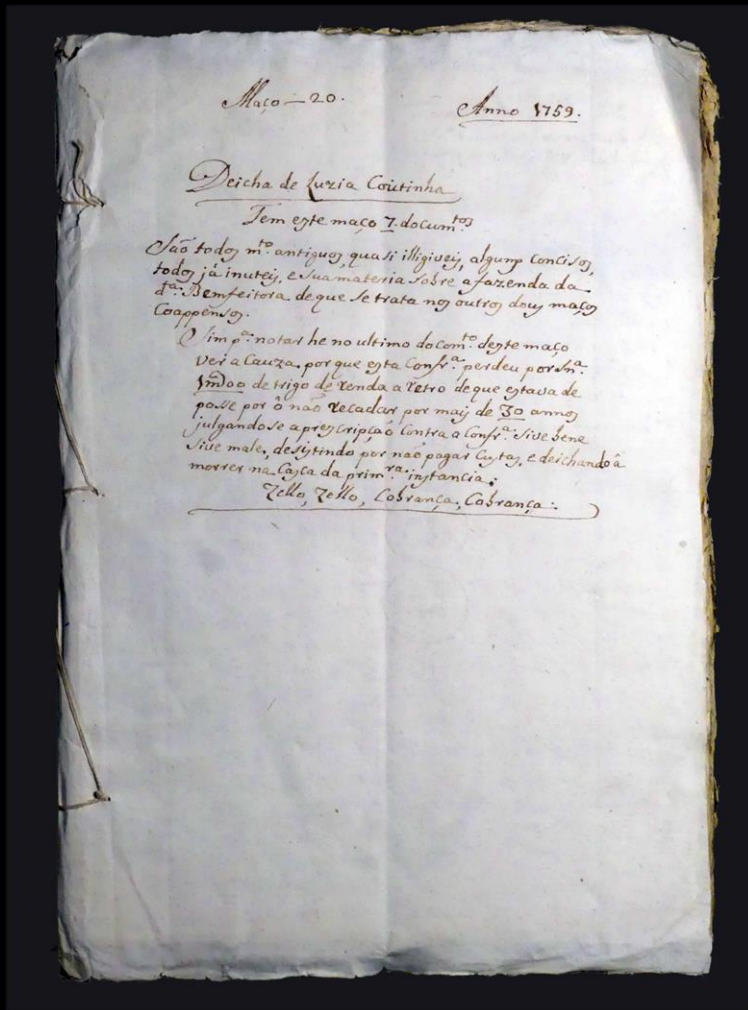 Maço — 20.
Anno 1759.
Deicha de Luzia Coutinha
Tem este maço 7. docum.tos
São todos m.to antiguos, quasi illigiveis, alguns concisos,
todos já inuteis, e sua materia sobre a fazenda da
d.a Bemfeitora de que se trata nos outros dous maços
coappensos.
Sim p.a notar he no ultimo docom.to deste maço
ver a Cauza, porque esta Confr.a perdeu por Sn.a
de trigo de renda a retro de que estava de
posse por ò não recadar por mais de 30 annos
julgandose a prescripçaõ contra a Confr.a sive bene
sive male, desistindo por naõ pagar Custas, e deichando â
morrer na Casca da prim.ra instancia:
Zello, Zello, Cobrança, Cobrança: